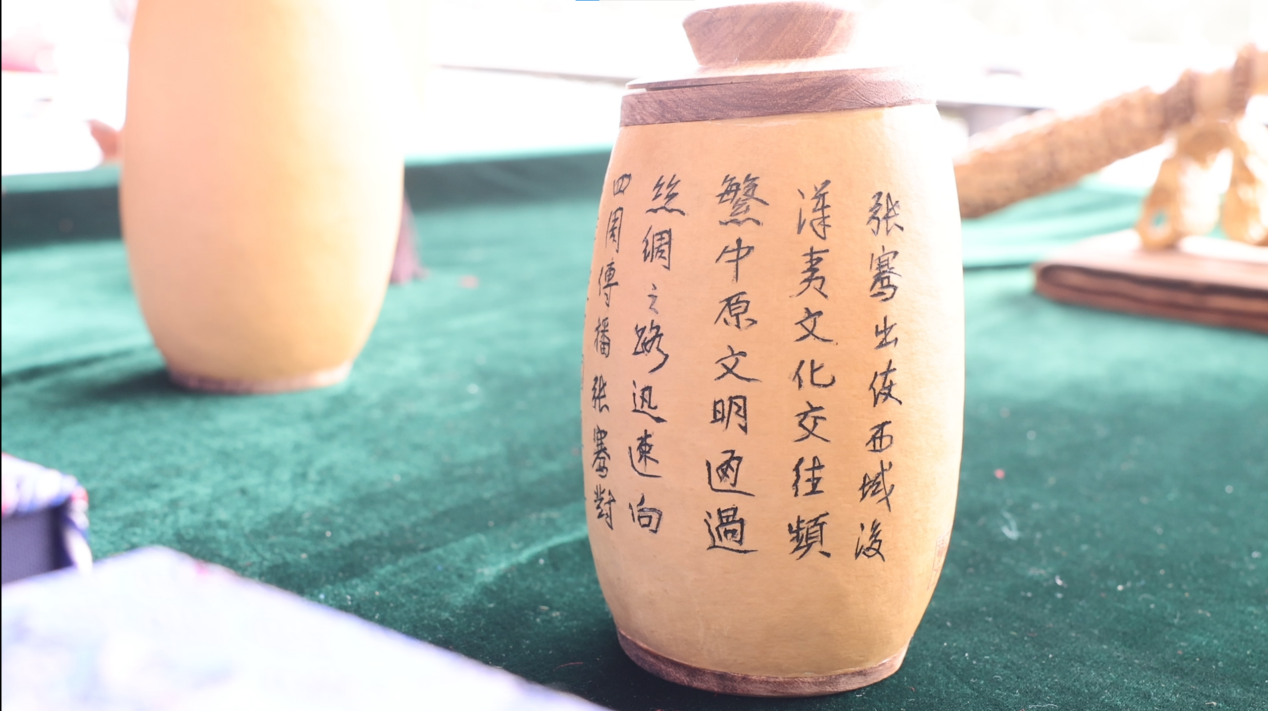 張骞出使西域後
漢夷文化交往頻
繁中原文明通過
絲綢之路迅速向
四周傳播张骞對